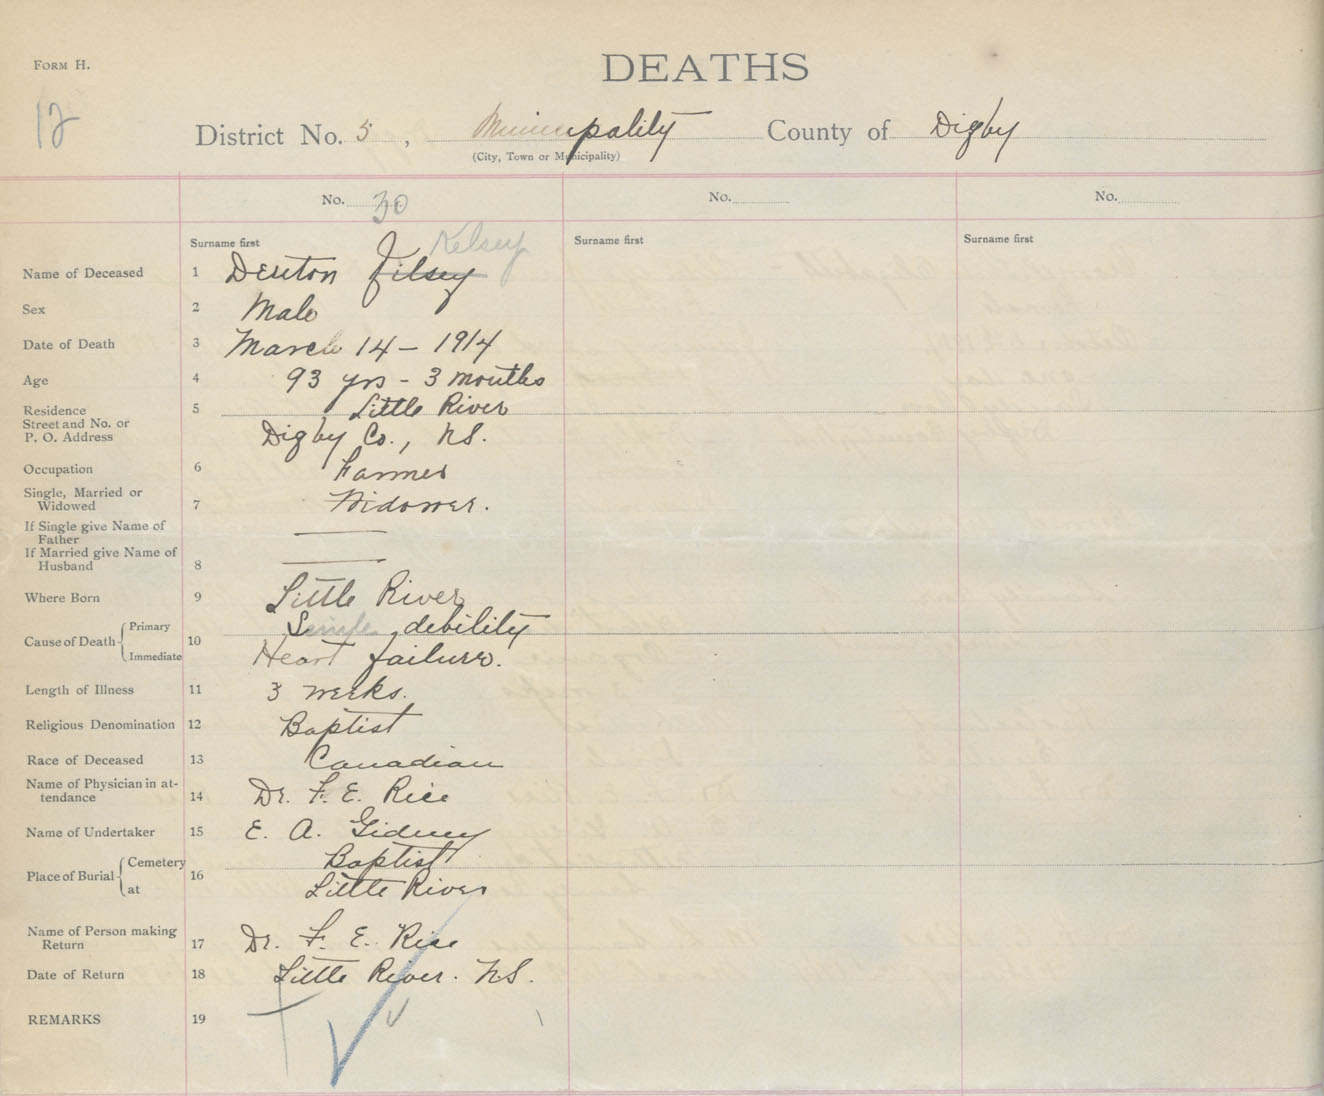 FORM H.
DEATHS
12
District No. 5, Municipality County of Digby
(City, Town or Municipality)
No. 30 No. No.
Surname first Kelsey Surname first Surname first
Name of Deceased 1 Denton Filsey
Sex 2 Male
Date of Death 3 March 14 - 1914
Age 4 93 yrs - 3 months
Residence 5 Little River
Street and No. or
P. O. Address Digby Co., N.S.
Occupation 6 Farmer
Single, Married or
Widowed 7 Widower.
If Single give Name of
Father
If Married give Name of
Husband 8
Where Born 9 Little River
Cause of Death Primary 10 Senile debility
Immediate Heart failure.
Length of Illness 11 3 weeks.
Religious Denomination 12 Baptist
Race of Deceased 13 Canadian
Name of Physician in at-
tendance 14 Dr. F. E. Rice
Name of Undertaker 15 E. A. Gidney
Place of Burial Cemetery 16 Baptist
at Little River
Name of Person making
Return 17 Dr. F. E. Rice
Date of Return 18 Little River. N.S.
REMARKS 19